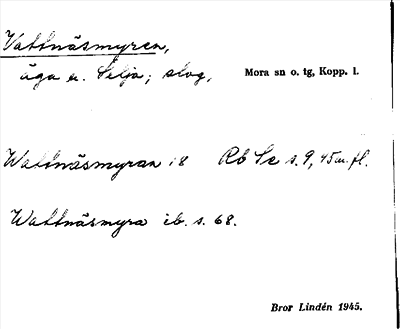 Vattnäsmyren,
äga u. Selja; slog,
Mora sn o. tg, Kopp. l.
Wattnäsmyran i 8 Rb Se s. 9, 45 m. fl.
Wattnäsmyra ib. s. 68.
Bror Lindén 1945.